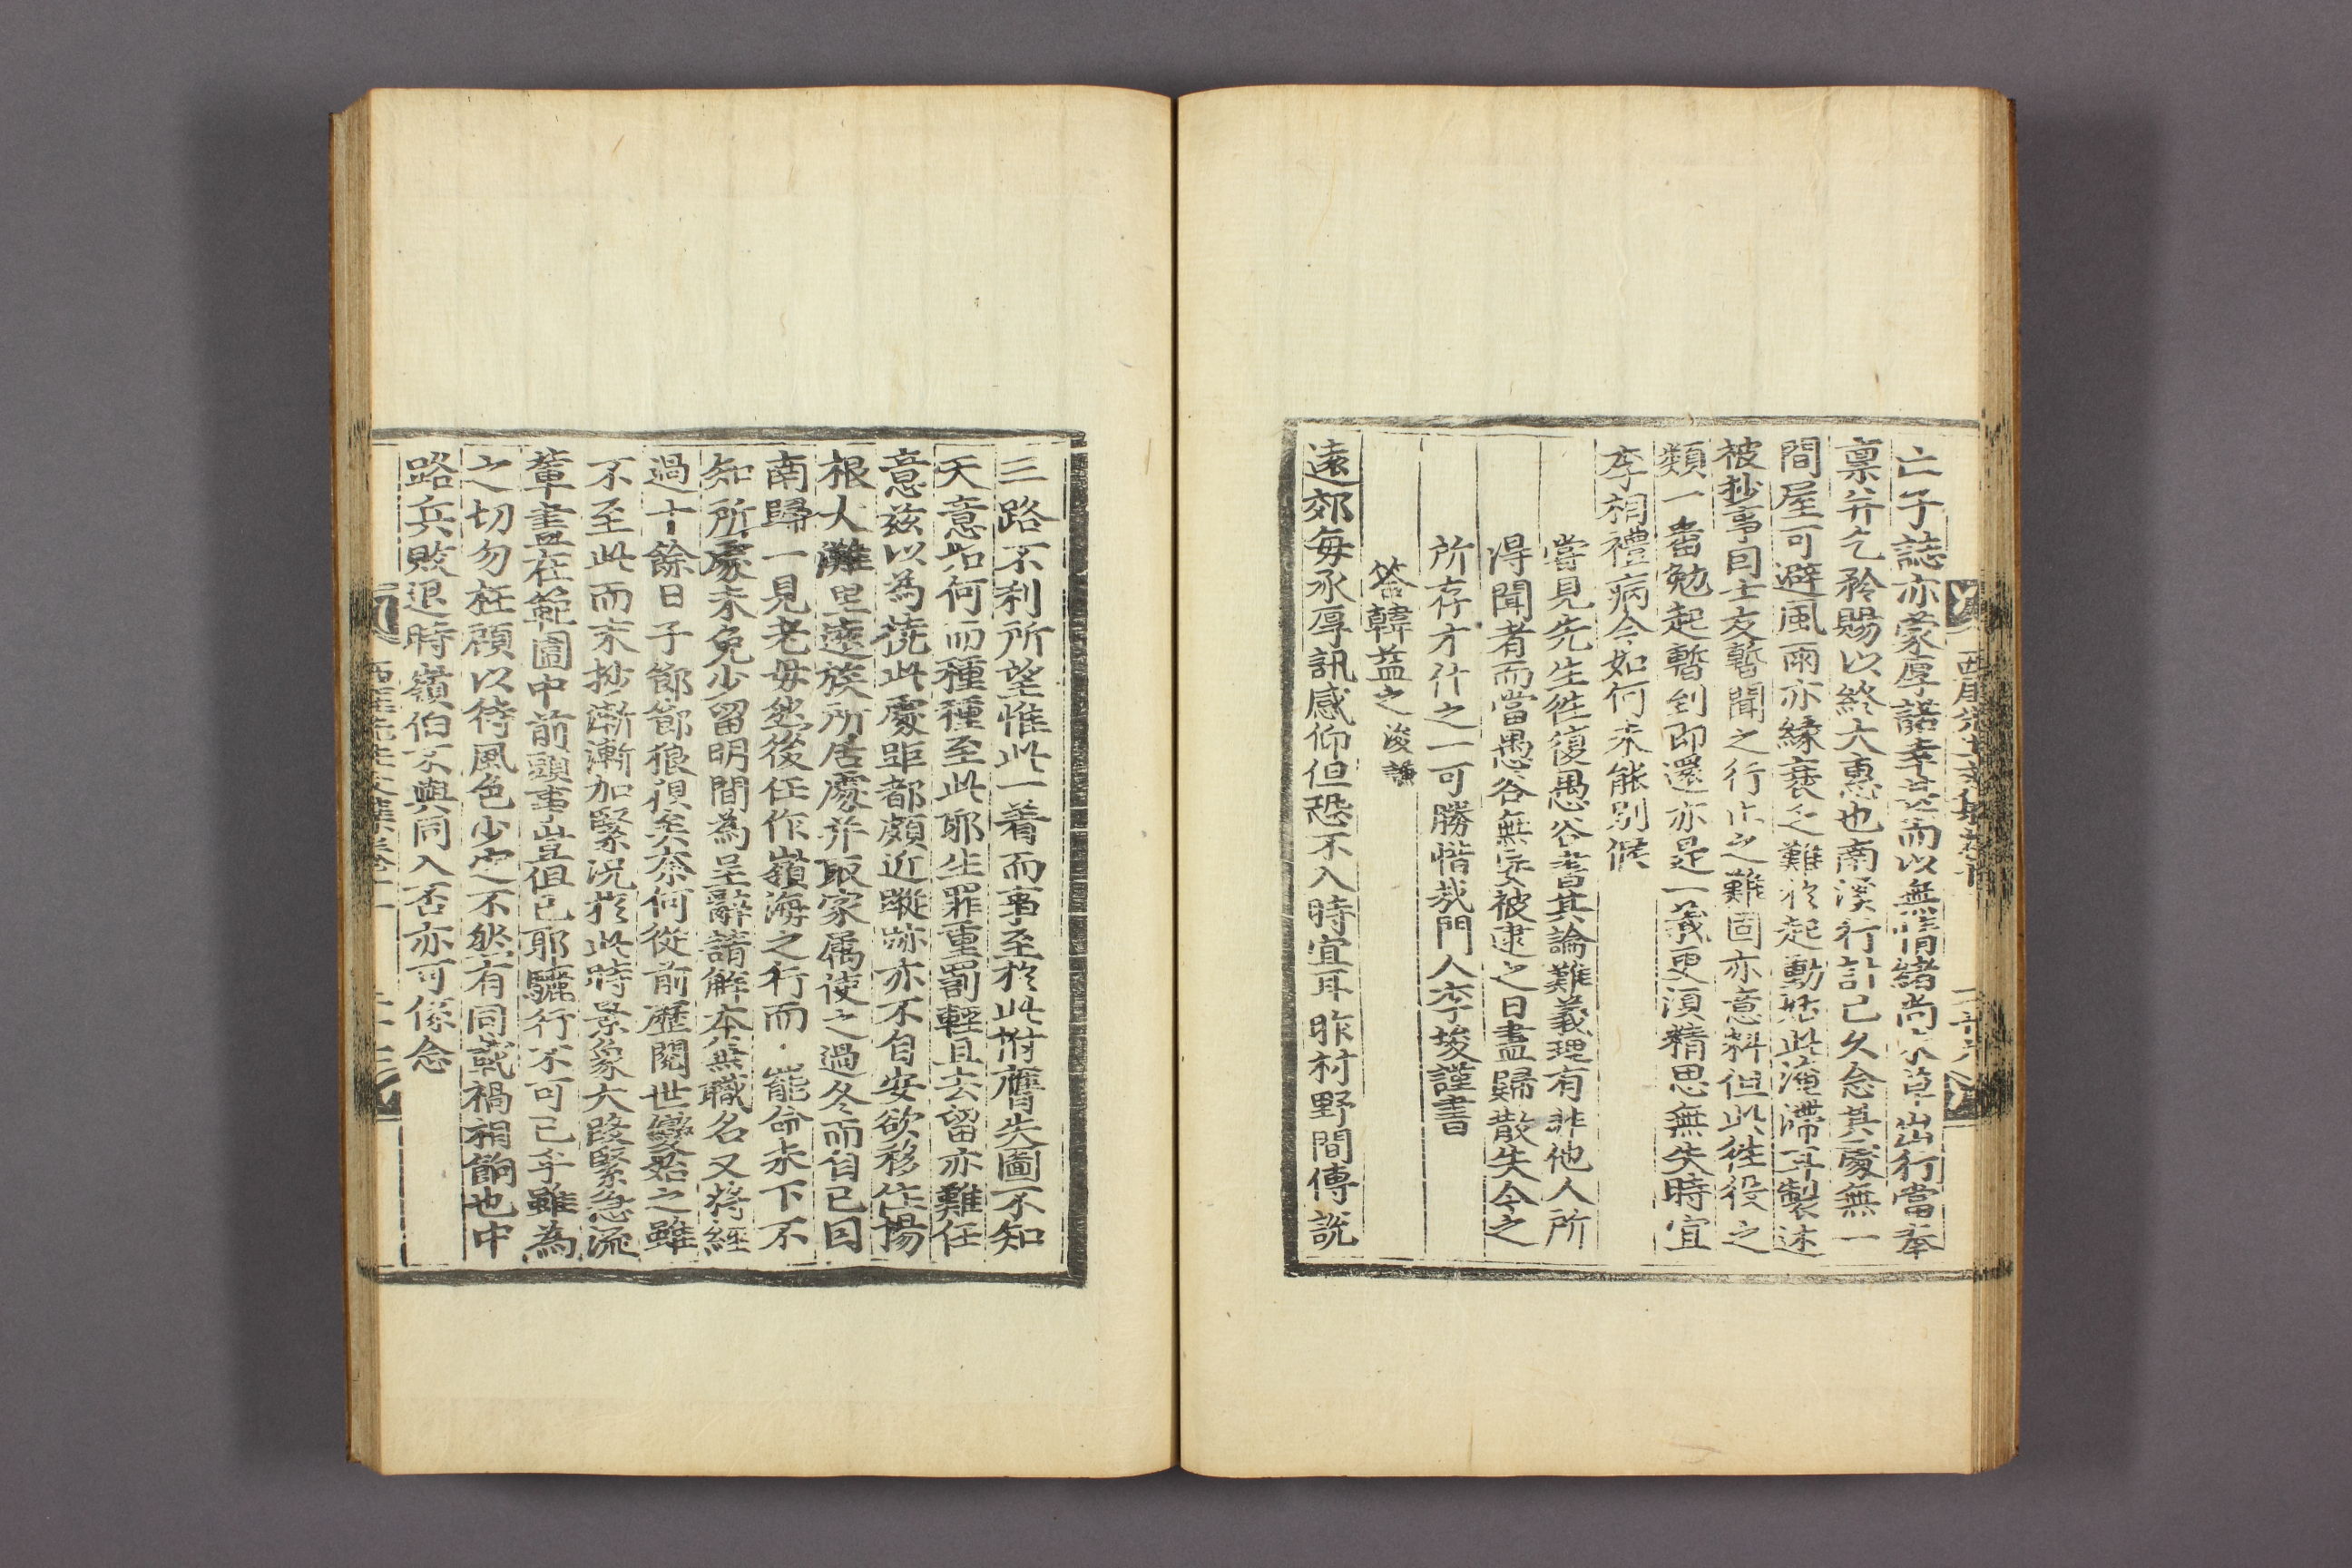 亡子誌亦蒙厚諾幸甚而以無情緒尚不草出行當奉
稟并乞矜賜以終大惠也南溪行計已久念其處無一
間屋可避風雨亦緣衰乏難於起動玆此淹滯耳製述
被抄事目士友暫聞之行止之難固亦意料但此徃役之
類一番勉起暫到即還亦是一義更須精思無失時宜
李相禮病今如何未能別候
嘗見先生徃復愚谷書其論難義理有非他人所
得聞者而當愚谷無妄被逮之日盡歸散失今之
所存才什之一可勝惜哉門人李埈謹書
答韓益之浚謙
遠郊每承厚訊感仰但恐不入時宜耳昨村野間傳說
三路不利所望惟此一着而事至於此拊膺失圖不知
天意如何而種種至此耶生罪重罰輕且去留亦難任
意玆以爲撓此處距都頗近蹤跡亦不自安欲移住楊
根大灘里遠族所居處并取家屬使之過冬而自已因
南歸一見老母然後任作嶺海之行而罷命未下不
知所處未免少留明間爲呈辭請解本無職名又將經
過十餘日子節節狼狽矣奈何從前歷閱世變始之雖
不至此而末抄漸漸加緊况於此時景象大段緊急流
輩盡在範圍中前頭事豈但已耶驪行不可已乎雖爲
之切勿枉顧以待風色少定不然有同載禍相餉也中
路兵敗退時嶺伯不與同入否亦可係念
西厓先生文集卷十一